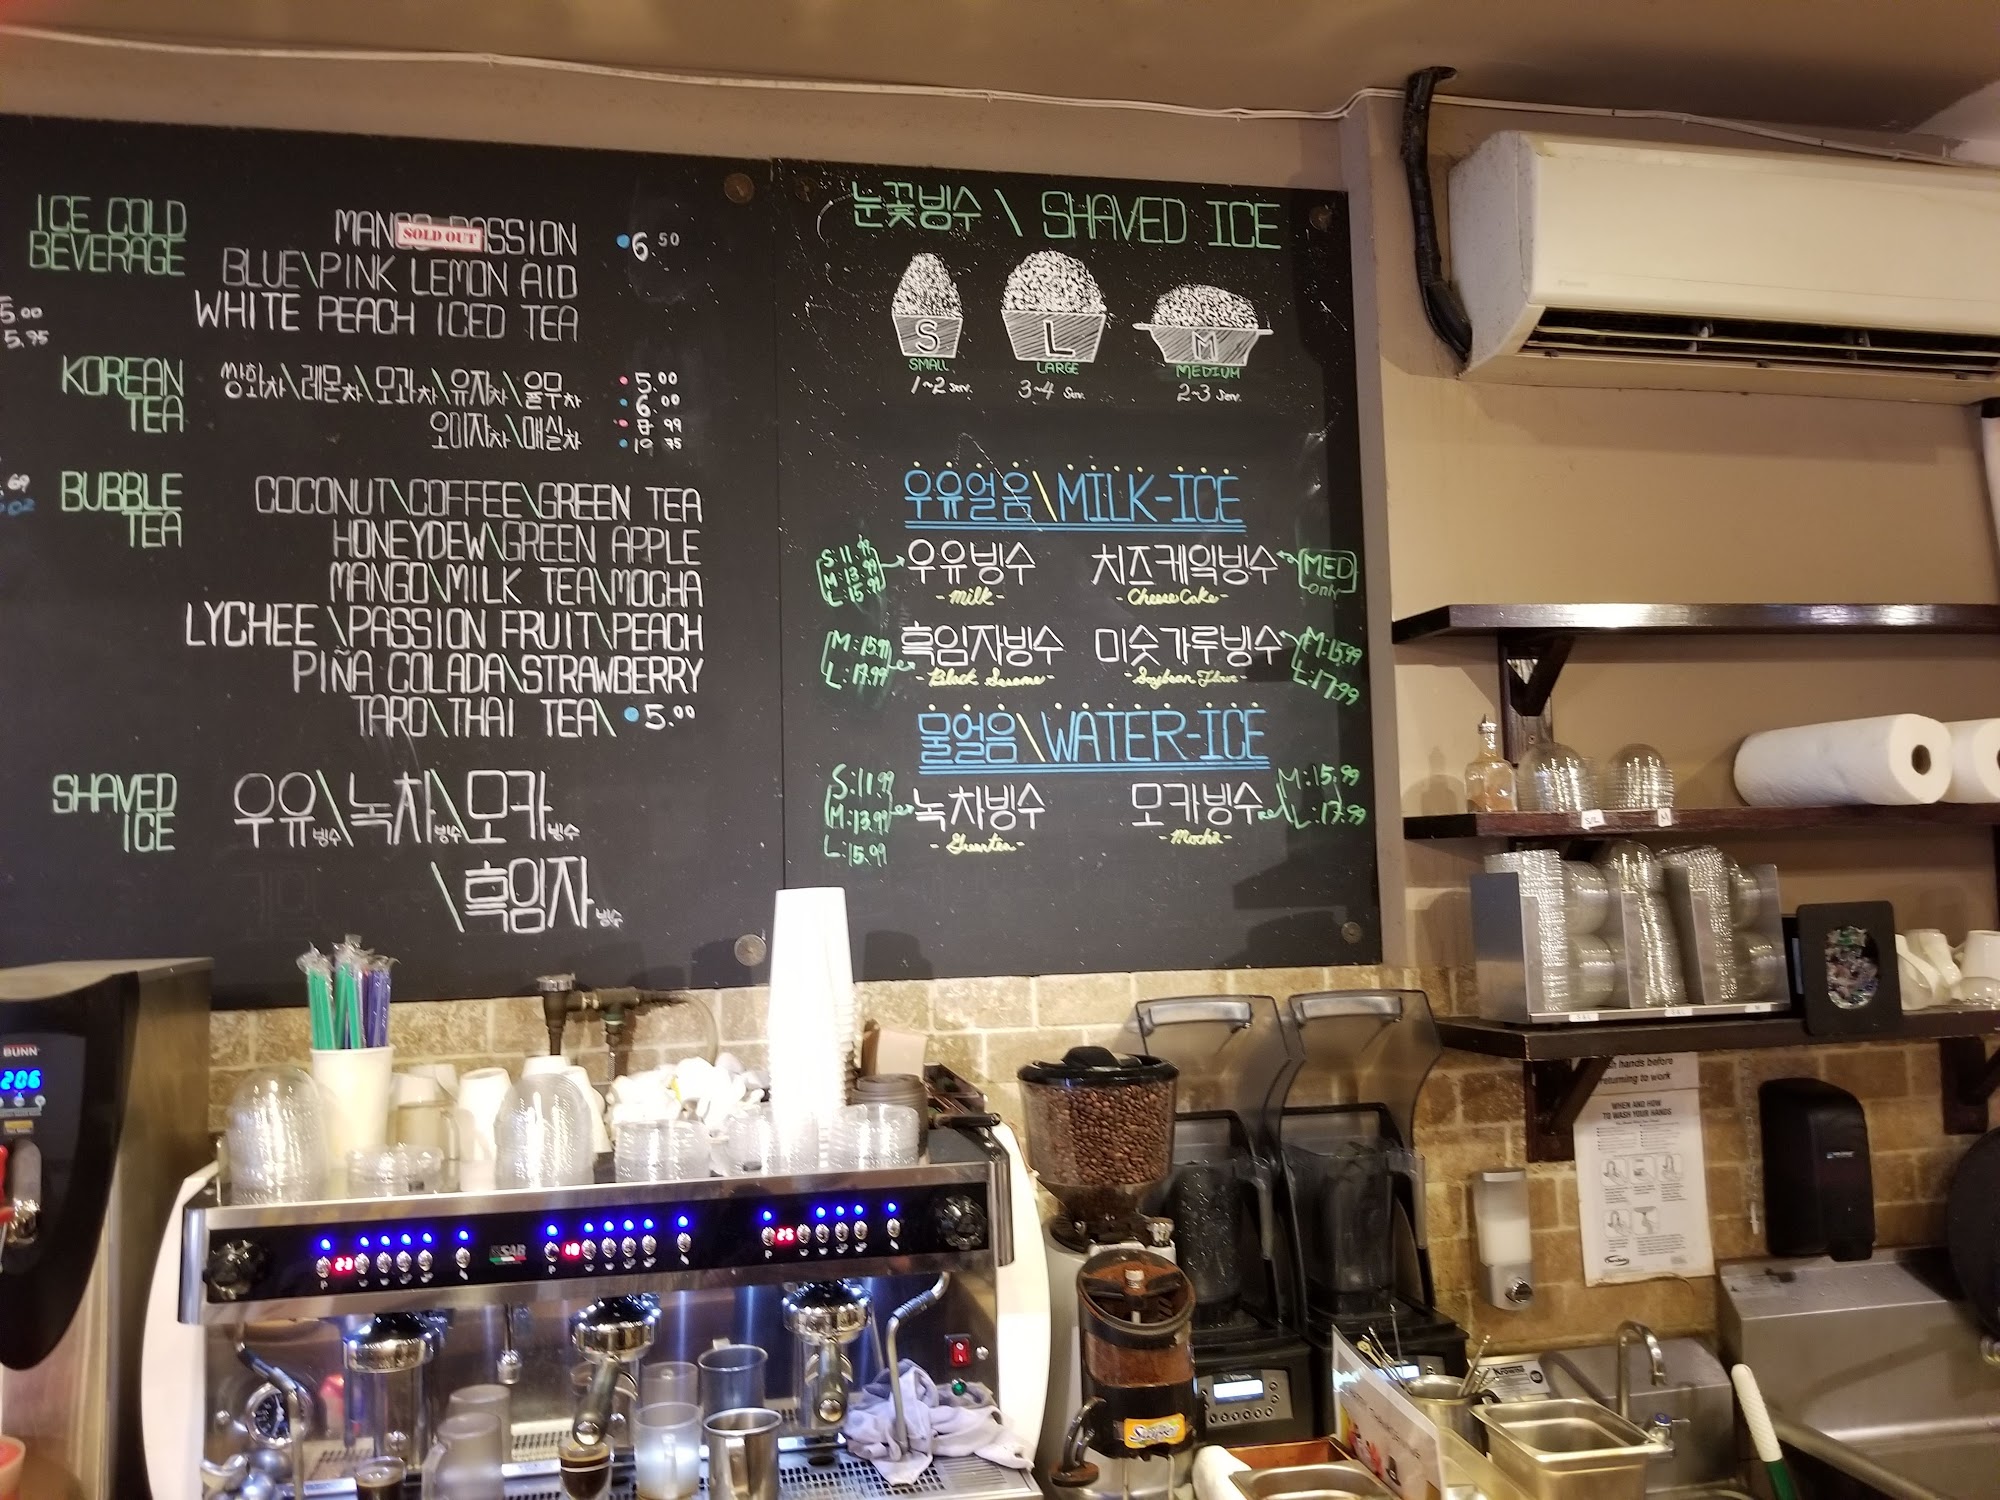 ICE COLD
BEVERAGE
SOLD OUT
6.50
BLUE\PINK LEMON AID
WHITE PEACH ICED TEA
5.00
5.75
KOREAN
TEA
쌍화차\레몬차\모과차\유자차\율무차
오미자차\매실차
5.00
6.00
99
75
BUBBLE
TEA
COCONUT\COFFEE\GREEN TEA
HONEYDEW\GREEN APPLE
MANGO\MILK TEA\MOCHA
LYCHEE\PASSION FRUIT\PEACH
PIÑA COLADA\STRAWBERRY
TARO\THAI TEA\ 5.00
SHAVED
ICE
우유빙수\녹차빙수\모카빙수
\흑임자빙수
눈꽃빙수 \ SHAVED ICE
S L M
SMALL LARGE MEDIUM
1~2 Serv. 3~4 Serv. 2~3 Serv.
우유얼음\MILK-ICE
S:11.99
M:13.99
L:15.99
우유빙수
-Milk-
치즈케익빙수
-CheeseCake-
MED
only
M:15.99
L:17.99
흑임자빙수
-Black Sesame-
미숫가루빙수
-Soybean Flour-
M:15.99
L:17.99
물얼음\WATER-ICE
S:11.99
M:13.99
L:15.99
녹차빙수
-Greentea-
모카빙수
-Mocha-
M:15.99
L:17.99
BUNN
206
hands before
returning to work
WHEN AND HOW
TO WASH YOUR HANDS
23
18
25
SAB